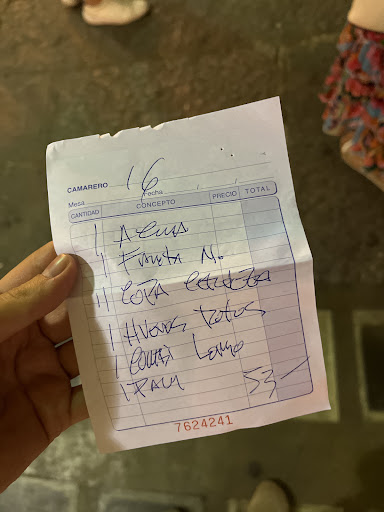 CAMARERO
16
Mesa Fecha / /
CANTIDAD CONCEPTO PRECIO TOTAL
1 AGUA
1 FANTA N.
11 COPA CERVEZA
1 HUEVOS ROTOS
1 LOMO
1 PAN
53-
7624241